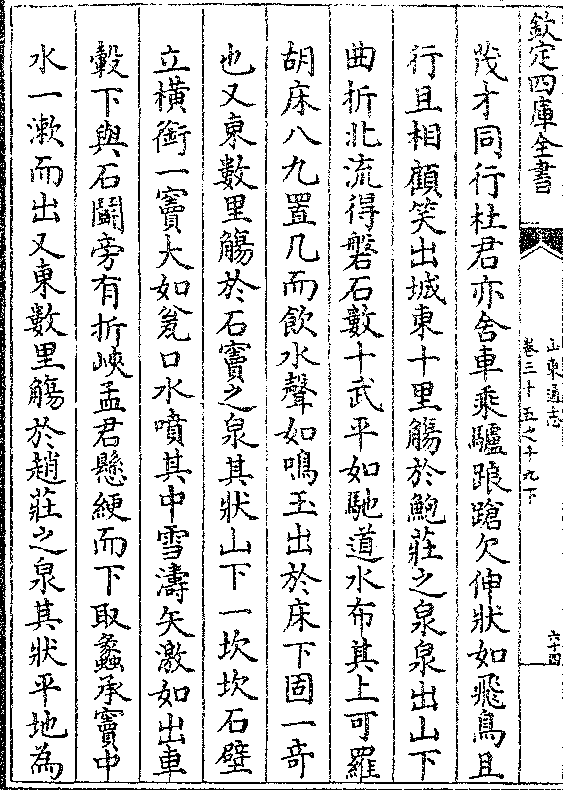 欽定四庫全書
山東通志
卷三十五之十九下
六十四
茂才同行杜君亦舍車乘驢踉蹌欠伸狀如飛鳥且
行且相顧笑出城東十里觴於鮑莊之泉泉出山下
曲折北流得磐石數十武平如馳道水布其上可羅
胡床八九置几而飲水聲如鳴玉出於床下固一奇
也又東數里觴於石竇之泉其狀山下一坎坎石壁
立橫銜一竇大如瓮口水噴其中雪濤矢激如出車
轂下與石鬪旁有折峽孟君懸綆而下取蠡承竇中
水一漱而出又東數里觴於趙莊之泉其狀平地為